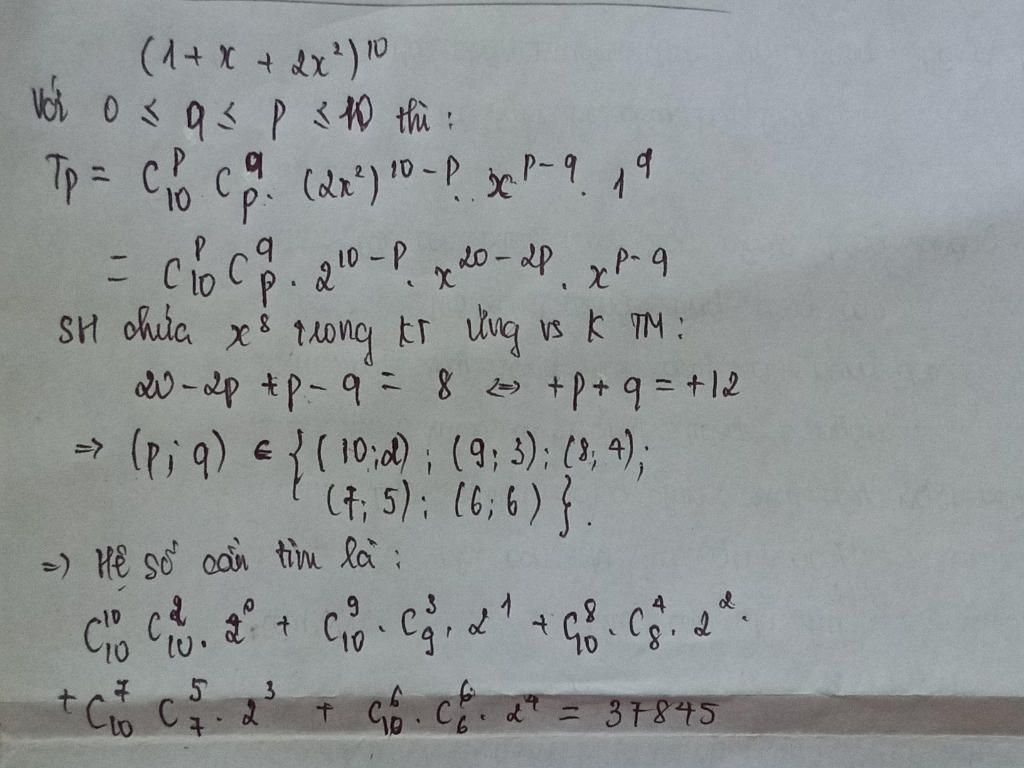 (1 + x + 2x²)¹⁰
Với 0 ≤ q ≤ p ≤ 10 thì:
Tp = C₁₀ᵖ Cₚ^q . (2x²)^(10-p) . x^(p-q) . 1^q
= C₁₀ᵖ Cₚ^q . 2^(10-p) . x^(20-2p) . x^(p-q)
SH chứa x⁸ trong KT ứng vs K TM:
20 - 2p + p - q = 8 ⇔ +p + q = +12
⇒ (p; q) ∈ { (10;2) ; (9; 3) ; (8; 4);
(7; 5) ; (6; 6) }.
⇒ Hệ số cần tìm là:
C₁₀¹⁰ C₁₀² . 2⁰ + C₁₀⁹ . C₉³ . 2¹ + C₁₀⁸ . C₈⁴ . 2² .
+ C₁₀⁷ C₇⁵ . 2³ + C₁₀⁶ . C₆⁶ . 2⁴ = 37845